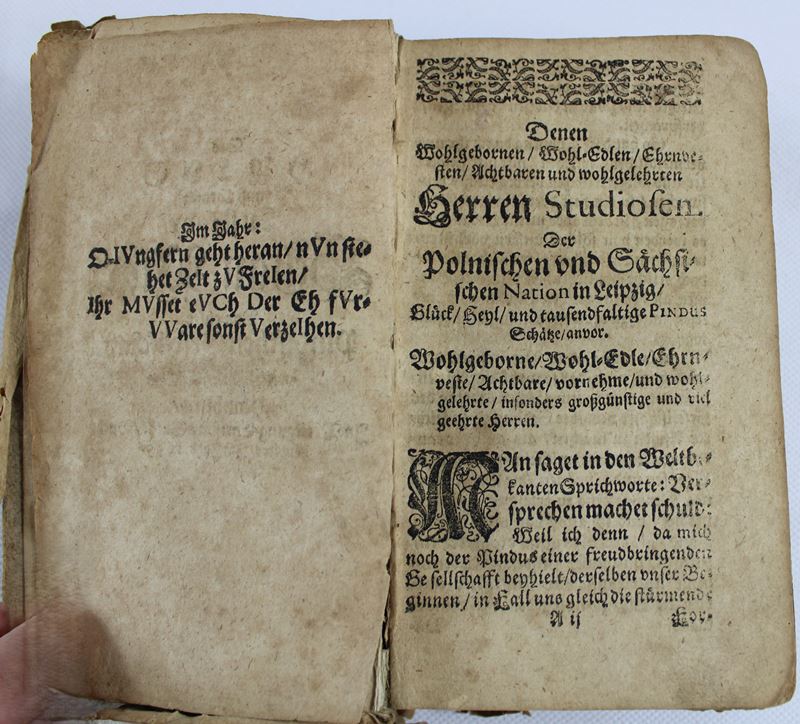 Im Jahr:
O IVngfern geht heran/ nVn ste-
het ZeIt zV FreIen/
Ihr MVsset eVCh Der Eh fVr-
VVar sonst VerzeIhen.
Denen
Wohlgebornen/ Wohl-Edlen/ Ehrnve-
sten/ Achtbaren und wohlgelehrten
Herren Studiosen.
Der
Polnischen vnd Sächsi-
schen Nation in Leipzig/
Glück/ Heyl/ und tausendfaltige PINDUS
Schätze/ anvor.
Wohlgeborne/ Wohl-Edle/ Ehrn-
veste/ Achtbare/ vornehme/ und wohl-
gelehrte/ insonders großgünstige und viel
geehrte Herren.
MAn saget in den Weltbe-
kanten Sprichworte: Ver-
sprechen machet schuld:
Weil ich denn / da mich
noch der Pindus einer freudbringenden
Gesellschafft beyhielt/ derselben vnser Be-
ginnen/ in Fall uns gleich die stürmende
A ij For-